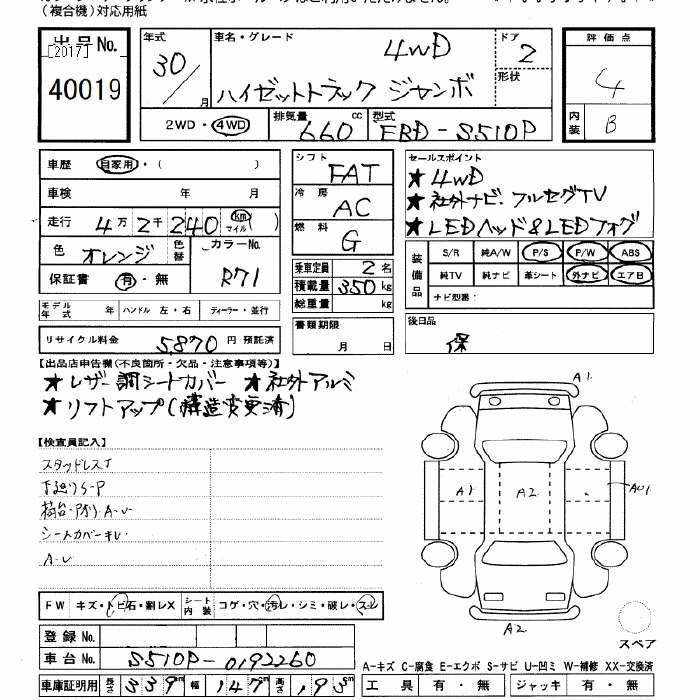 (複合機)対応用紙
出品No.
[2017]
40019
年式
30/
月
車名・グレード
4WD
ハイゼットトラック ジャンボ
ドア
2
形状
2WD・4WD
排気量
660
cc
型式
EBD-S510P
評価点
4
内装
B
車歴
自家用・( )
車検
年 月
走行
4万2千240
km
マイル
( )
色
オレンジ
色替
カラーNo.
R71
保証書
有・無
モデル年式
年
ハンドル 左・右
ディーラー・並行
リサイクル料金
5,870
円 預託済
シフト
FAT
冷房
AC
燃料
G
乗車定員
2
名
積載量
350
kg
総重量
kg
書類期限
月 日
セールスポイント
★4WD
★社外ナビ・フルセグTV
★LEDヘッド&LEDフォグ
装備品
S/R 純A/W P/S P/W ABS
純TV 純ナビ 革シート 外ナビ エアB
ナビ型番:
後日品
保
【出品店申告欄(不良箇所・欠品・注意事項等)】
★レザー調シートカバー ★社外アルミ
★リフトアップ(構造変更済)
【検査員記入】
スタッドレスT
下廻りS-P
荷台・内外A・U
シートカバーキレ
A・U
FW
キズ・トビ石・割レX
シート内装
コゲ・穴・汚レ・シミ・破レ・スレ
登録No.
車台No.
S510P-0192260
車庫証明用
長さ
339
cm
幅
147
cm
高さ
193
cm
A1
A1
A2
AU1
A2
スペア
A-キズ C-腐食 E-エクボ S-サビ U-凹ミ W-補修 XX-交換済
工具
有・無
ジャッキ
有・無